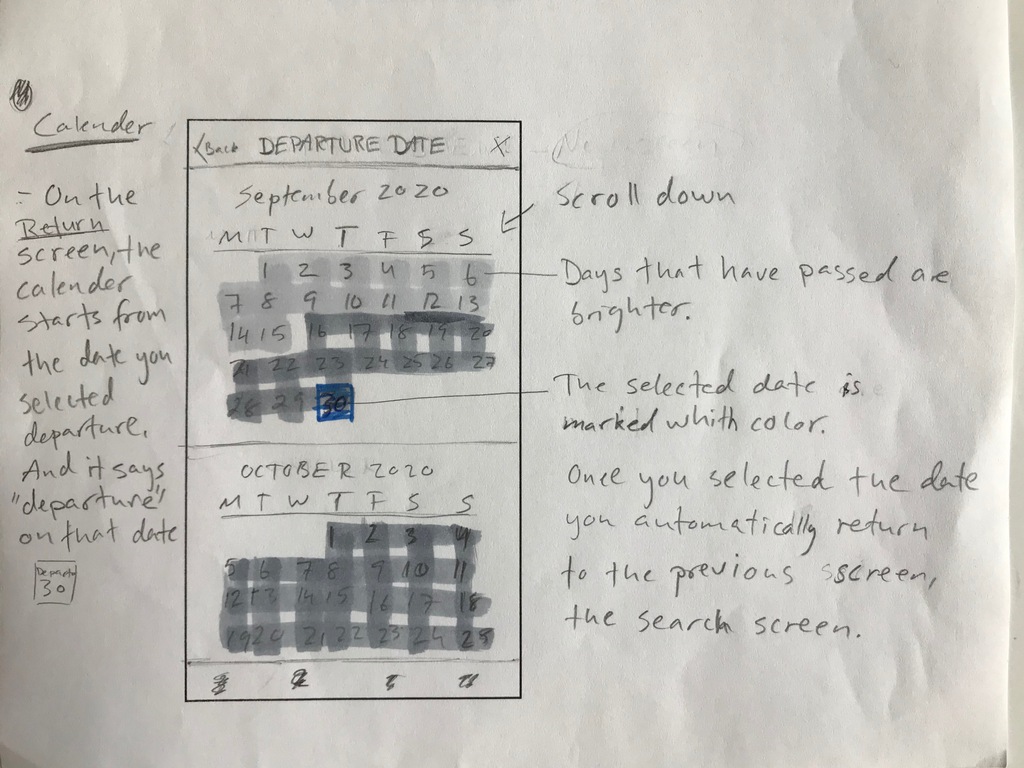 Calender
- On the
Return
screen, the
calender
starts from
the date you
selected
departure.
And it says
"departure"
on that date
30
Back DEPARTURE DATE X
September 2020
M T W T F S S
1 2 3 4 5 6
7 8 9 10 11 12 13
14 15 16 17 18 19 20
21 22 23 24 25 26 27
28 29 30
OCTOBER 2020
M T W T F S S
1 2 3 4
5 6 7 8 9 10 11
12 13 14 15 16 17 18
19 20 21 22 23 24 25
Scroll down
Days that have passed are
brighter.
The selected date is
marked whith color.
Once you selected the date
you automatically return
to the previous sscreen,
the search screen.